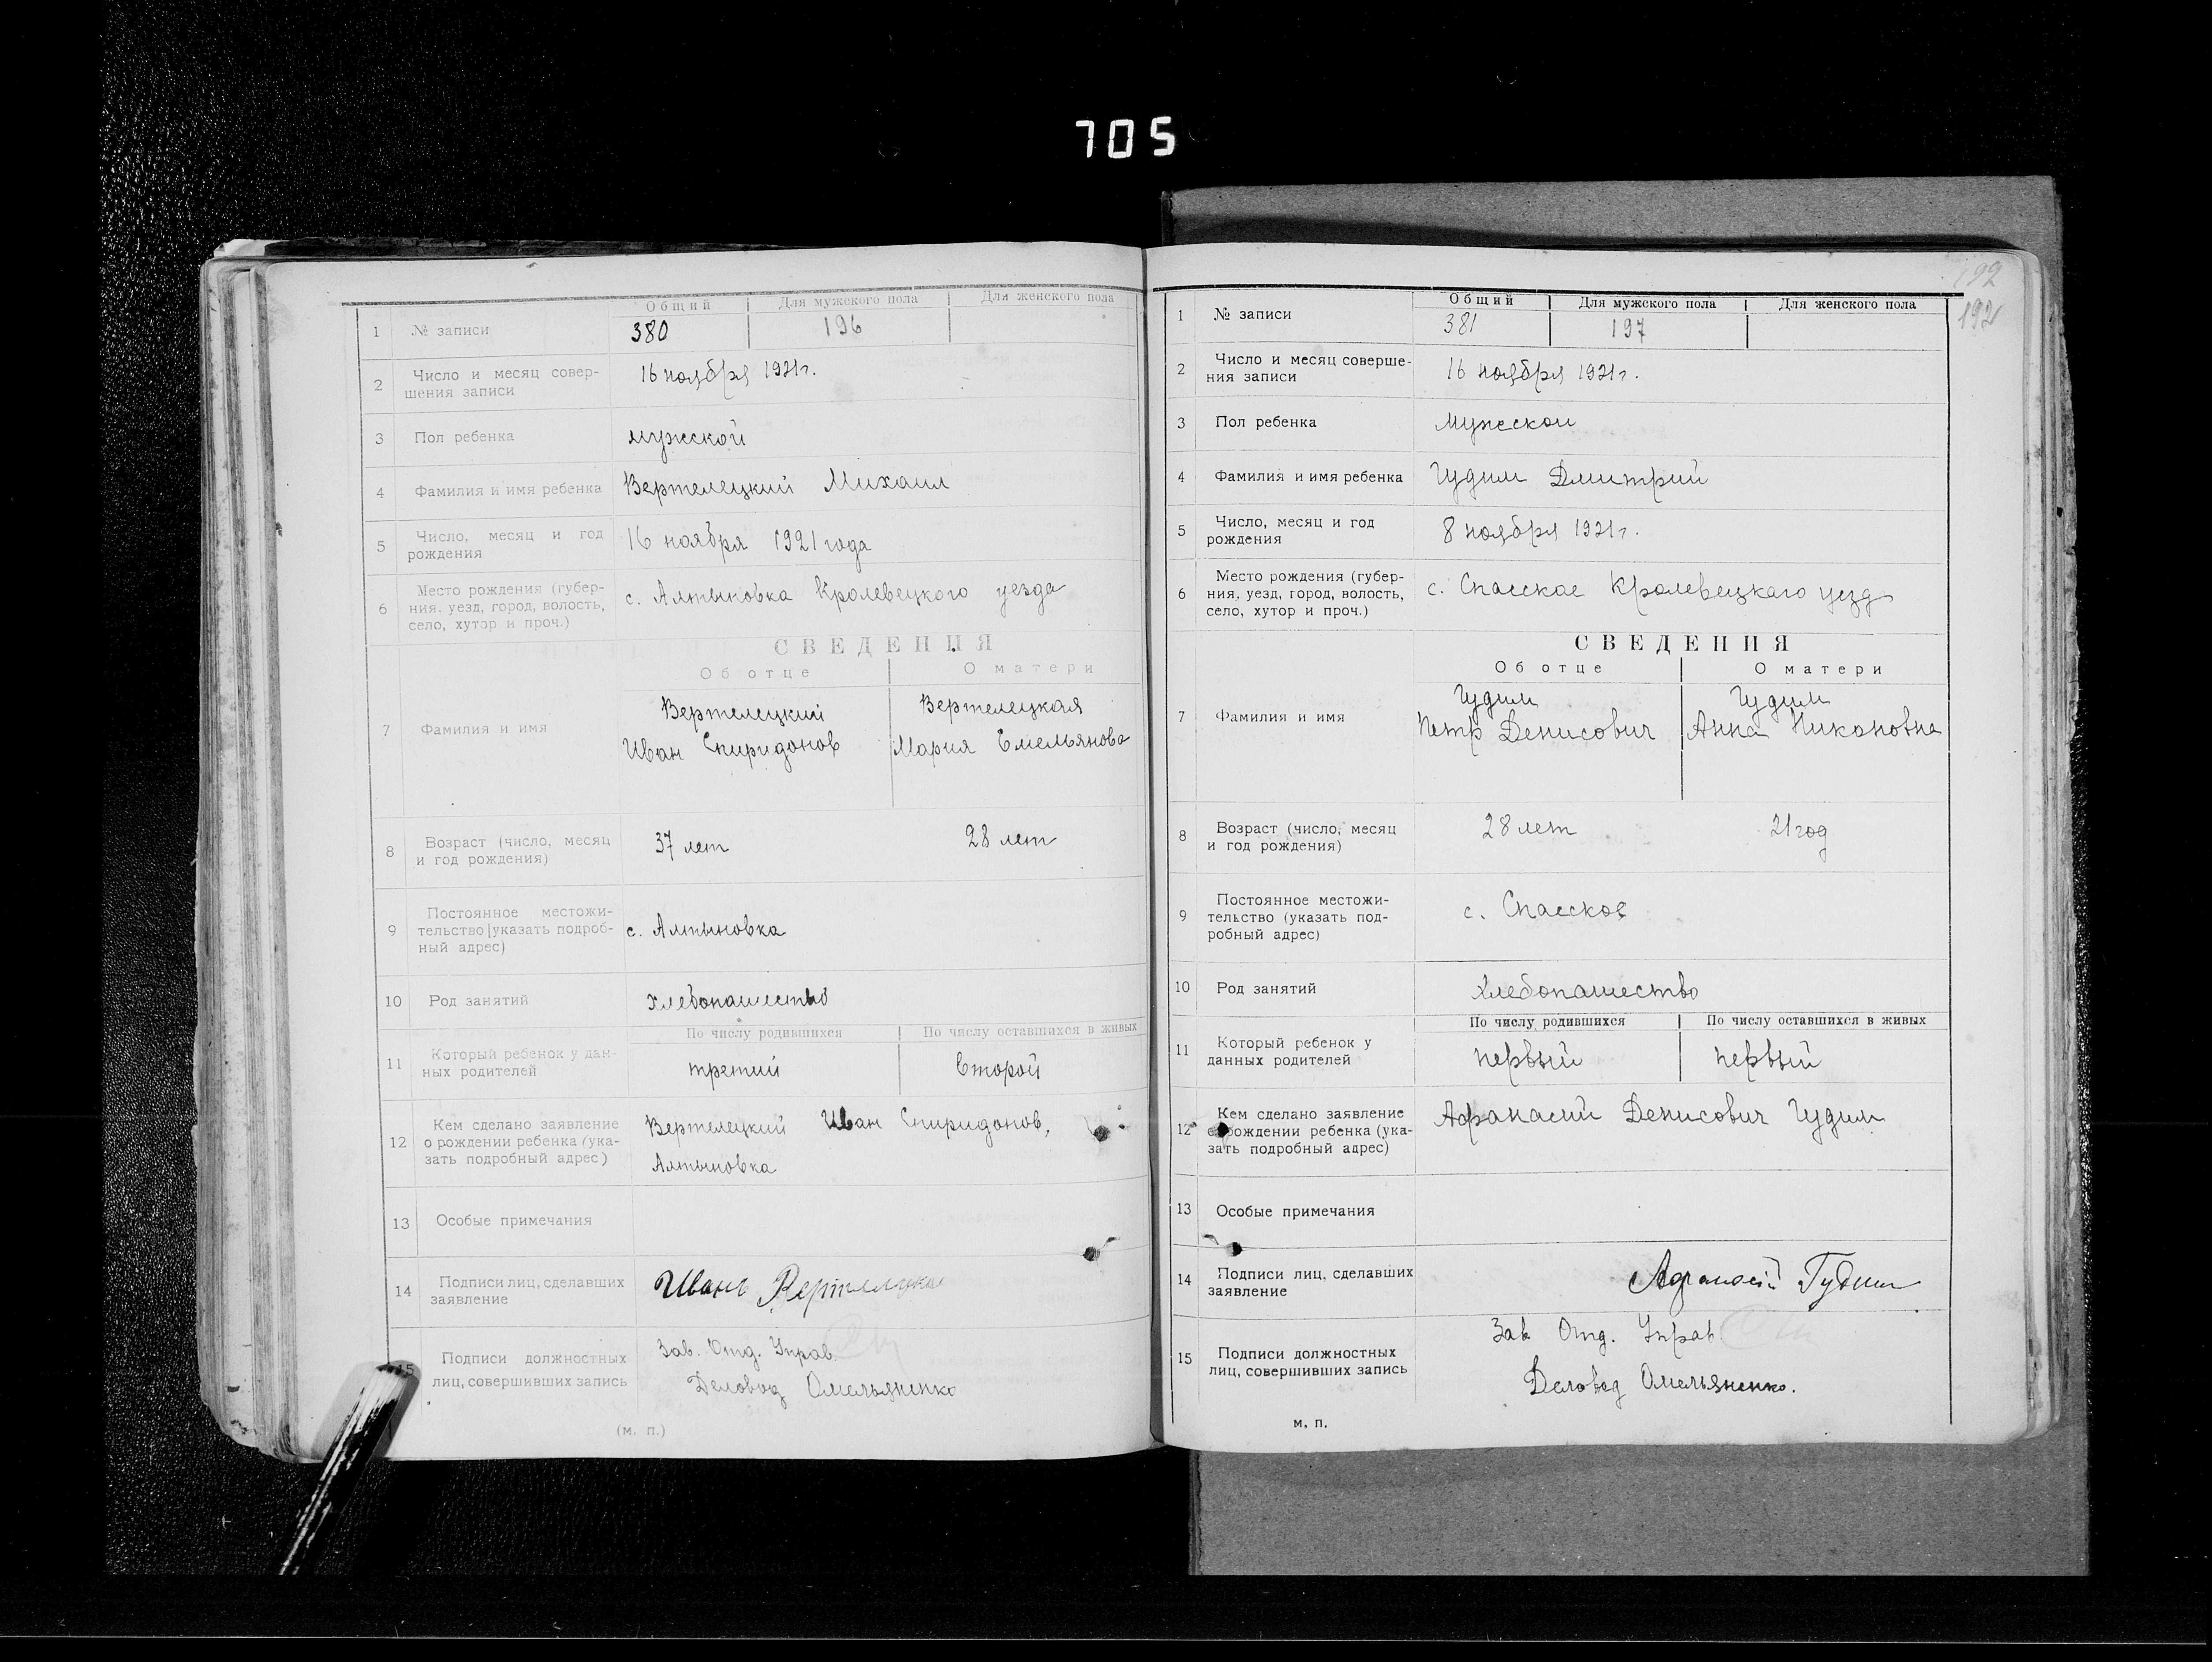 705
Общий Для мужского пола Для женского пола
1 № записи 380 196
2 Число и месяц совер-
шения записи 16 ноября 1921г.
3 Пол ребенка мужской
4 Фамилия и имя ребенка Вертелецкий Михаил
5 Число, месяц и год
рождения 16 ноября 1921 года
6 Место рождения (губер-
ния, уезд, город, волость,
село, хутор и проч.) с. Алтыновка Кролевецкого уезда
СВЕДЕНИЯ
Об отце О матери
7 Фамилия и имя
Вертелецкий Вертелецкая
Иван Спиридонов Мария Емельянова
8 Возраст (число, месяц
и год рождения) 37 лет 28 лет
9 Постоянное местожи-
тельство [указать подроб-
ный адрес) с. Алтыновка
10 Род занятий хлебопашество
По числу родившихся По числу оставшихся в живых
11 Который ребенок у дан-
ных родителей третий второй
12 Кем сделано заявление
о рождении ребенка (ука-
зать подробный адрес) Вертелецкий Иван Спиридонов,
Алтыновка
13 Особые примечания
14 Подписи лиц, сделавших
заявление Иванъ
15 Подписи должностных
лиц, совершивших запись Зав. Отд. Управ.
Деловод Омельяненко
(м. п.)
192
192
Общий Для мужского пола Для женского пола
1 № записи 381 197
2 Число и месяц соверше-
ния записи 16 ноября 1921г.
3 Пол ребенка Мужской
4 Фамилия и имя ребенка Гудим Дмитрий
5 Число, месяц и год
рождения 8 ноября 1921г.
6 Место рождения (губер-
ния, уезд, город, волость,
село, хутор и проч.) с. Спасское Кролевецкаго уезд
СВЕДЕНИЯ
Об отце О матери
7 Фамилия и имя
Гудим Гудим
Петр Денисович Анна Никоновна
8 Возраст (число, месяц
и год рождения) 28 лет 21 год
9 Постоянное местожи-
тельство (указать под-
робный адрес) с. Спасское
10 Род занятий Хлебопашество
По числу родившихся По числу оставшихся в живых
11 Который ребенок у
данных родителей первый первый
12 Кем сделано заявление
о рождении ребенка (ука-
зать подробный адрес) Афанасий Денисович Гудим
13 Особые примечания
14 Подписи лиц, сделавших
заявление Афанасій Гудим
15 Подписи должностных
лиц, совершивших запись Зав Отд. Управ
Деловод Омельяненко.
м. п.